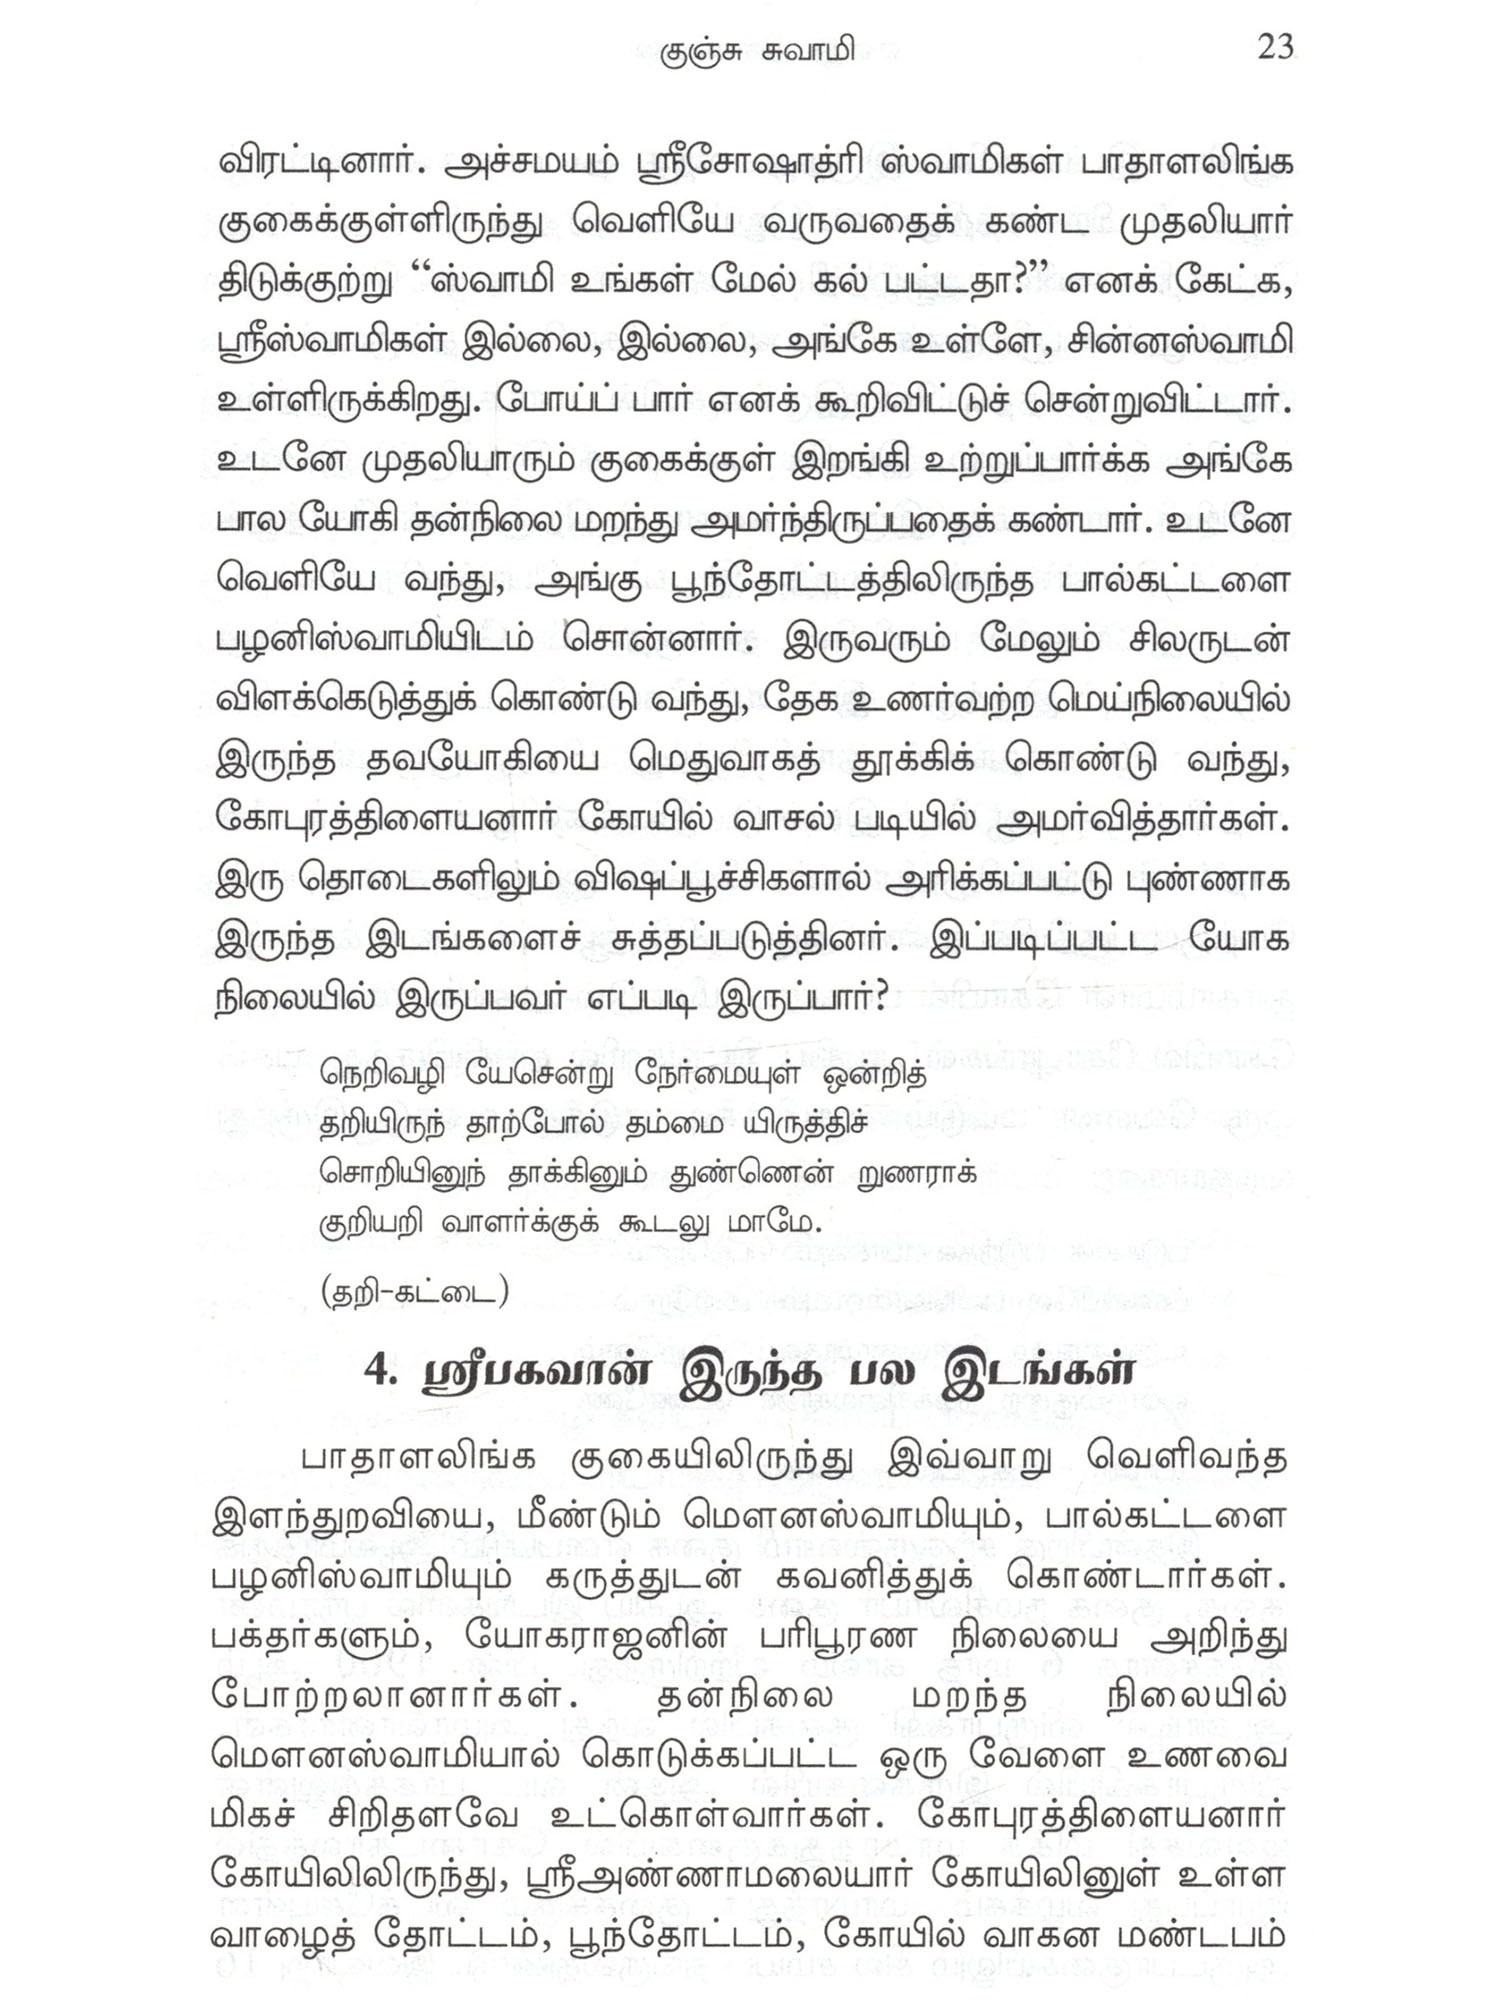 குஞ்சு சுவாமி 23
விரட்டினார். அச்சமயம் ஸ்ரீசோஷாத்ரி ஸ்வாமிகள் பாதாளலிங்க
குகைக்குள்ளிருந்து வெளியே வருவதைக் கண்ட முதலியார்
திடுக்குற்று “ஸ்வாமி உங்கள் மேல் கல் பட்டதா?” எனக் கேட்க,
ஸ்ரீஸ்வாமிகள் இல்லை, இல்லை, அங்கே உள்ளே, சின்னஸ்வாமி
உள்ளிருக்கிறது. போய்ப் பார் எனக் கூறிவிட்டுச் சென்றுவிட்டார்.
உடனே முதலியாரும் குகைக்குள் இறங்கி உற்றுப்பார்க்க அங்கே
பால யோகி தன்நிலை மறந்து அமர்ந்திருப்பதைக் கண்டார். உடனே
வெளியே வந்து, அங்கு பூந்தோட்டத்திலிருந்த பால்கட்டளை
பழனிஸ்வாமியிடம் சொன்னார். இருவரும் மேலும் சிலருடன்
விளக்கெடுத்துக் கொண்டு வந்து, தேக உணர்வற்ற மெய்நிலையில்
இருந்த தவயோகியை மெதுவாகத் தூக்கிக் கொண்டு வந்து,
கோபுரத்திளையனார் கோயில் வாசல் படியில் அமர்வித்தார்கள்.
இரு தொடைகளிலும் விஷப்பூச்சிகளால் அரிக்கப்பட்டு புண்ணாக
இருந்த இடங்களைச் சுத்தப்படுத்தினர். இப்படிப்பட்ட யோக
நிலையில் இருப்பவர் எப்படி இருப்பார்?
நெறிவழி யேசென்று நேர்மையுள் ஒன்றித்
தறியிருந் தாற்போல் தம்மை யிருத்திச்
சொறியினுந் தாக்கினும் துண்ணென் றுணராக்
குறியறி வாளர்க்குக் கூடலு மாமே.
(தறி-கட்டை)
4. ஸ்ரீபகவான் இருந்த பல இடங்கள்
பாதாளலிங்க குகையிலிருந்து இவ்வாறு வெளிவந்த
இளந்துறவியை, மீண்டும் மௌனஸ்வாமியும், பால்கட்டளை
பழனிஸ்வாமியும் கருத்துடன் கவனித்துக் கொண்டார்கள்.
பக்தர்களும், யோகராஜனின் பரிபூரண நிலையை அறிந்து
போற்றலானார்கள். தன்நிலை மறந்த நிலையில்
மௌனஸ்வாமியால் கொடுக்கப்பட்ட ஒரு வேளை உணவை
மிகச் சிறிதளவே உட்கொள்வார்கள். கோபுரத்திளையனார்
கோயிலிலிருந்து, ஸ்ரீஅண்ணாமலையார் கோயிலினுள் உள்ள
வாழைத் தோட்டம், பூந்தோட்டம், கோயில் வாகன மண்டபம்